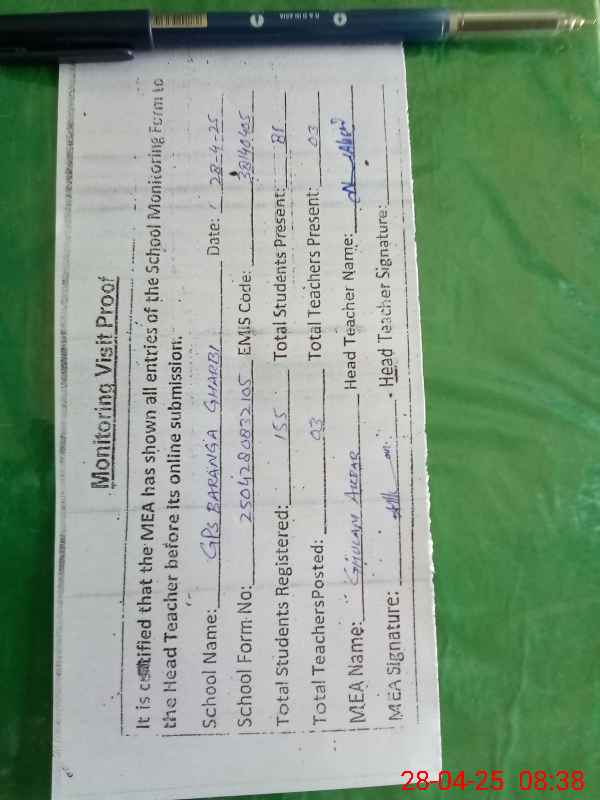 Monitoring Visit Proof
It is certified that the MEA has shown all entries of the School Monitoring Form to
the Head Teacher before its online submission.
School Name: GPS BARANGA GHARBI Date: 28-4-25
School Form No: 2504280832105 EMIS Code: 38140405
Total Students Registered: 155 Total Students Present: 81
Total TeachersPosted: 03 Total Teachers Present: 03
MEA Name: GHULAM AKBAR Head Teacher Name:
MEA Signature: Head Teacher Signature:
28-04-25 08:38